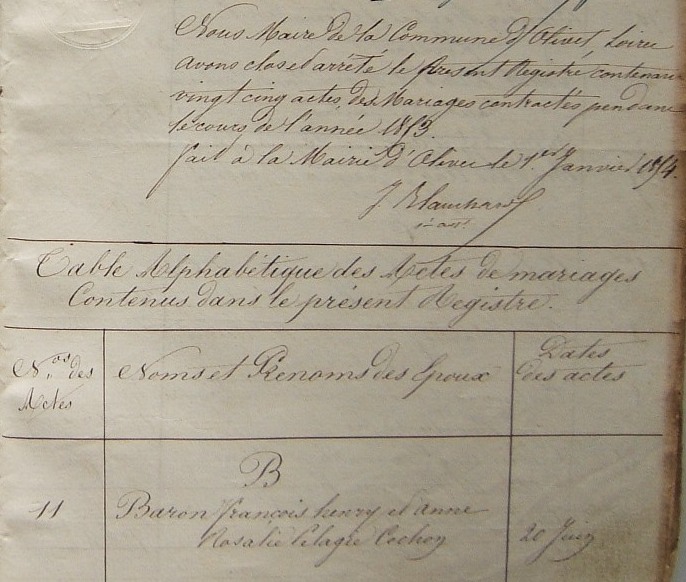 Nous Maire de la Commune d'Olivet, Loiret
avons clos et arrêté le présent Registre contenant
vingt cinq actes des Mariages contractés pendant
le cours de l'année 1853.
fait à la Mairie d'Olivet le 1.er Janvier 1854.
J. Blanchard
Table Alphabétique des Actes de mariages
Contenus dans le présent Registre.
N.os des
Actes
Noms et Prenoms des Epoux
Dates
des actes
B
11 Baron françois henry et anne
Rosalie Pelagie Cochon 20 Juin